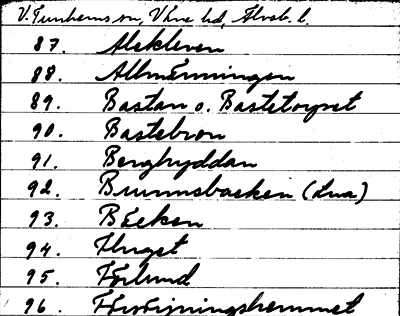 V. Tunhems sn, Väne hd, Älvsb. l.
87. Alekleven
88. Allmänningen
89. Bastan o. Bastetorpet
90. Bastebron
91. Berghyddan
92. Brunnsbacken (Lua)
93. Bäcken
94. Fluget
95. Förlund
96. Försörjningshemmet